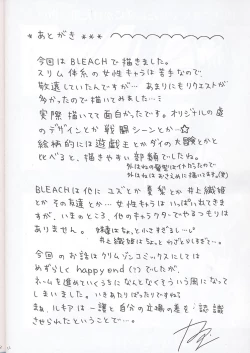 * あとがき ***
今回はBLEACHで描きました。
スリム体系の女性キャラは苦手なので
敬遠していたんですが… あまりにもリクエストが
多かったので描いてみました…
実際 描いてて面白かったです。オリジナルの虚
のデザインとか 戦闘シーンとか…☆
絵柄的には遊戯王とかダイの大冒険とかと
比べると、描きやすい部類でしたね。
BLEACHは他に ユズとか 夏梨とか 井上織姫
とか その友達とか… 女性キャラは いっぱいでてきま
すが、いまのところ、他のキャラクターでやるつもりは
ありません。
井上織姫はちょっと
今回のお話はクリムゾンコミックスにしては
めずらしく happy end (?) でしたが、
ネームを進めていくうちに なんとなくそういう風になって
しまいました。いきあたりばったりですね?
まぁ、ルキアは一護と自分の立場の差を 認識
させられたということで…。